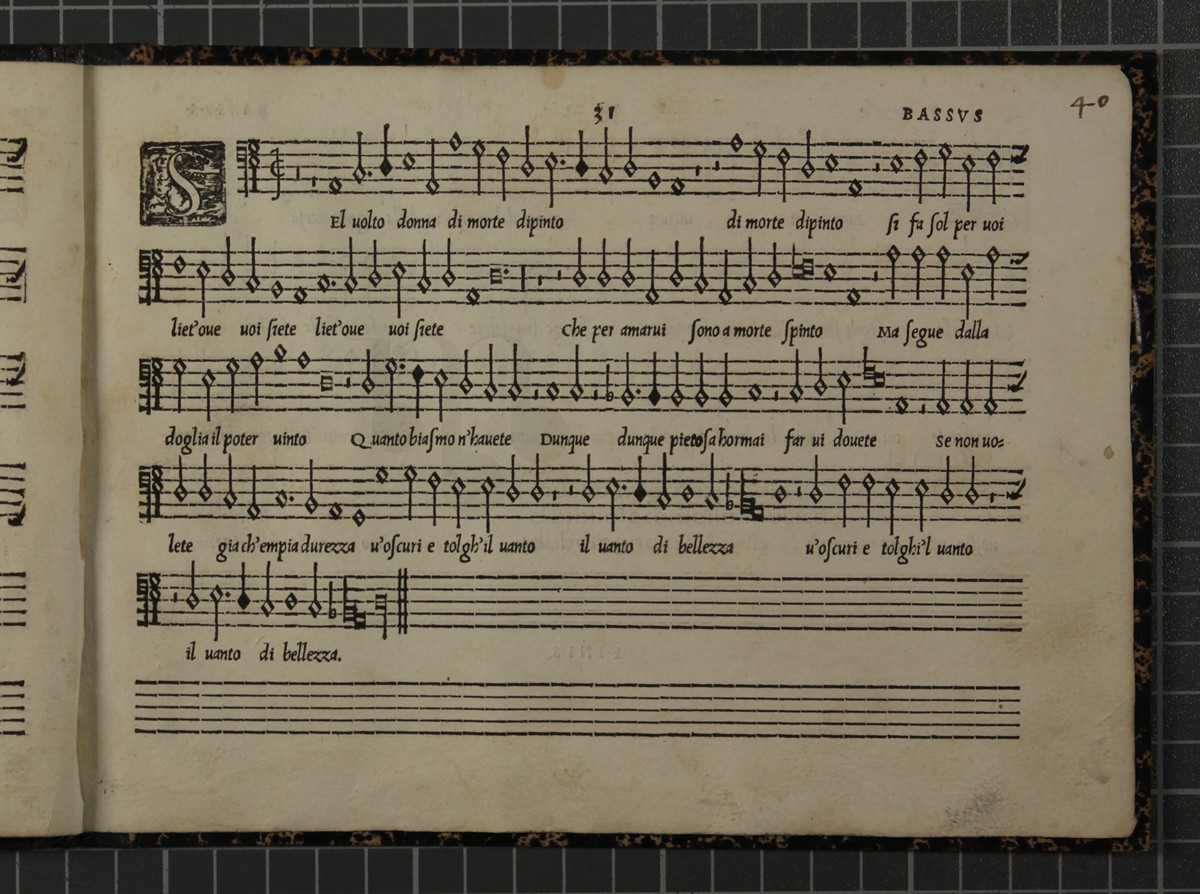 31 BASSVS 40
SEl uolto donna di morte dipinto di morte dipinto si fa sol per uoi
liet'oue uoi siete liet'oue uoi siete Che per amarui sono a morte spinto Ma segue dalla
doglia il poter uinto Quanto biasmo n'hauete Dunque dunque pietosa hormai far ui douete Se non uo=
lete gia ch'empia durezza u'oscuri e tolgh'il uanto il uanto di bellezza u'oscuri e tolghi'l uanto
il uanto di bellezza.